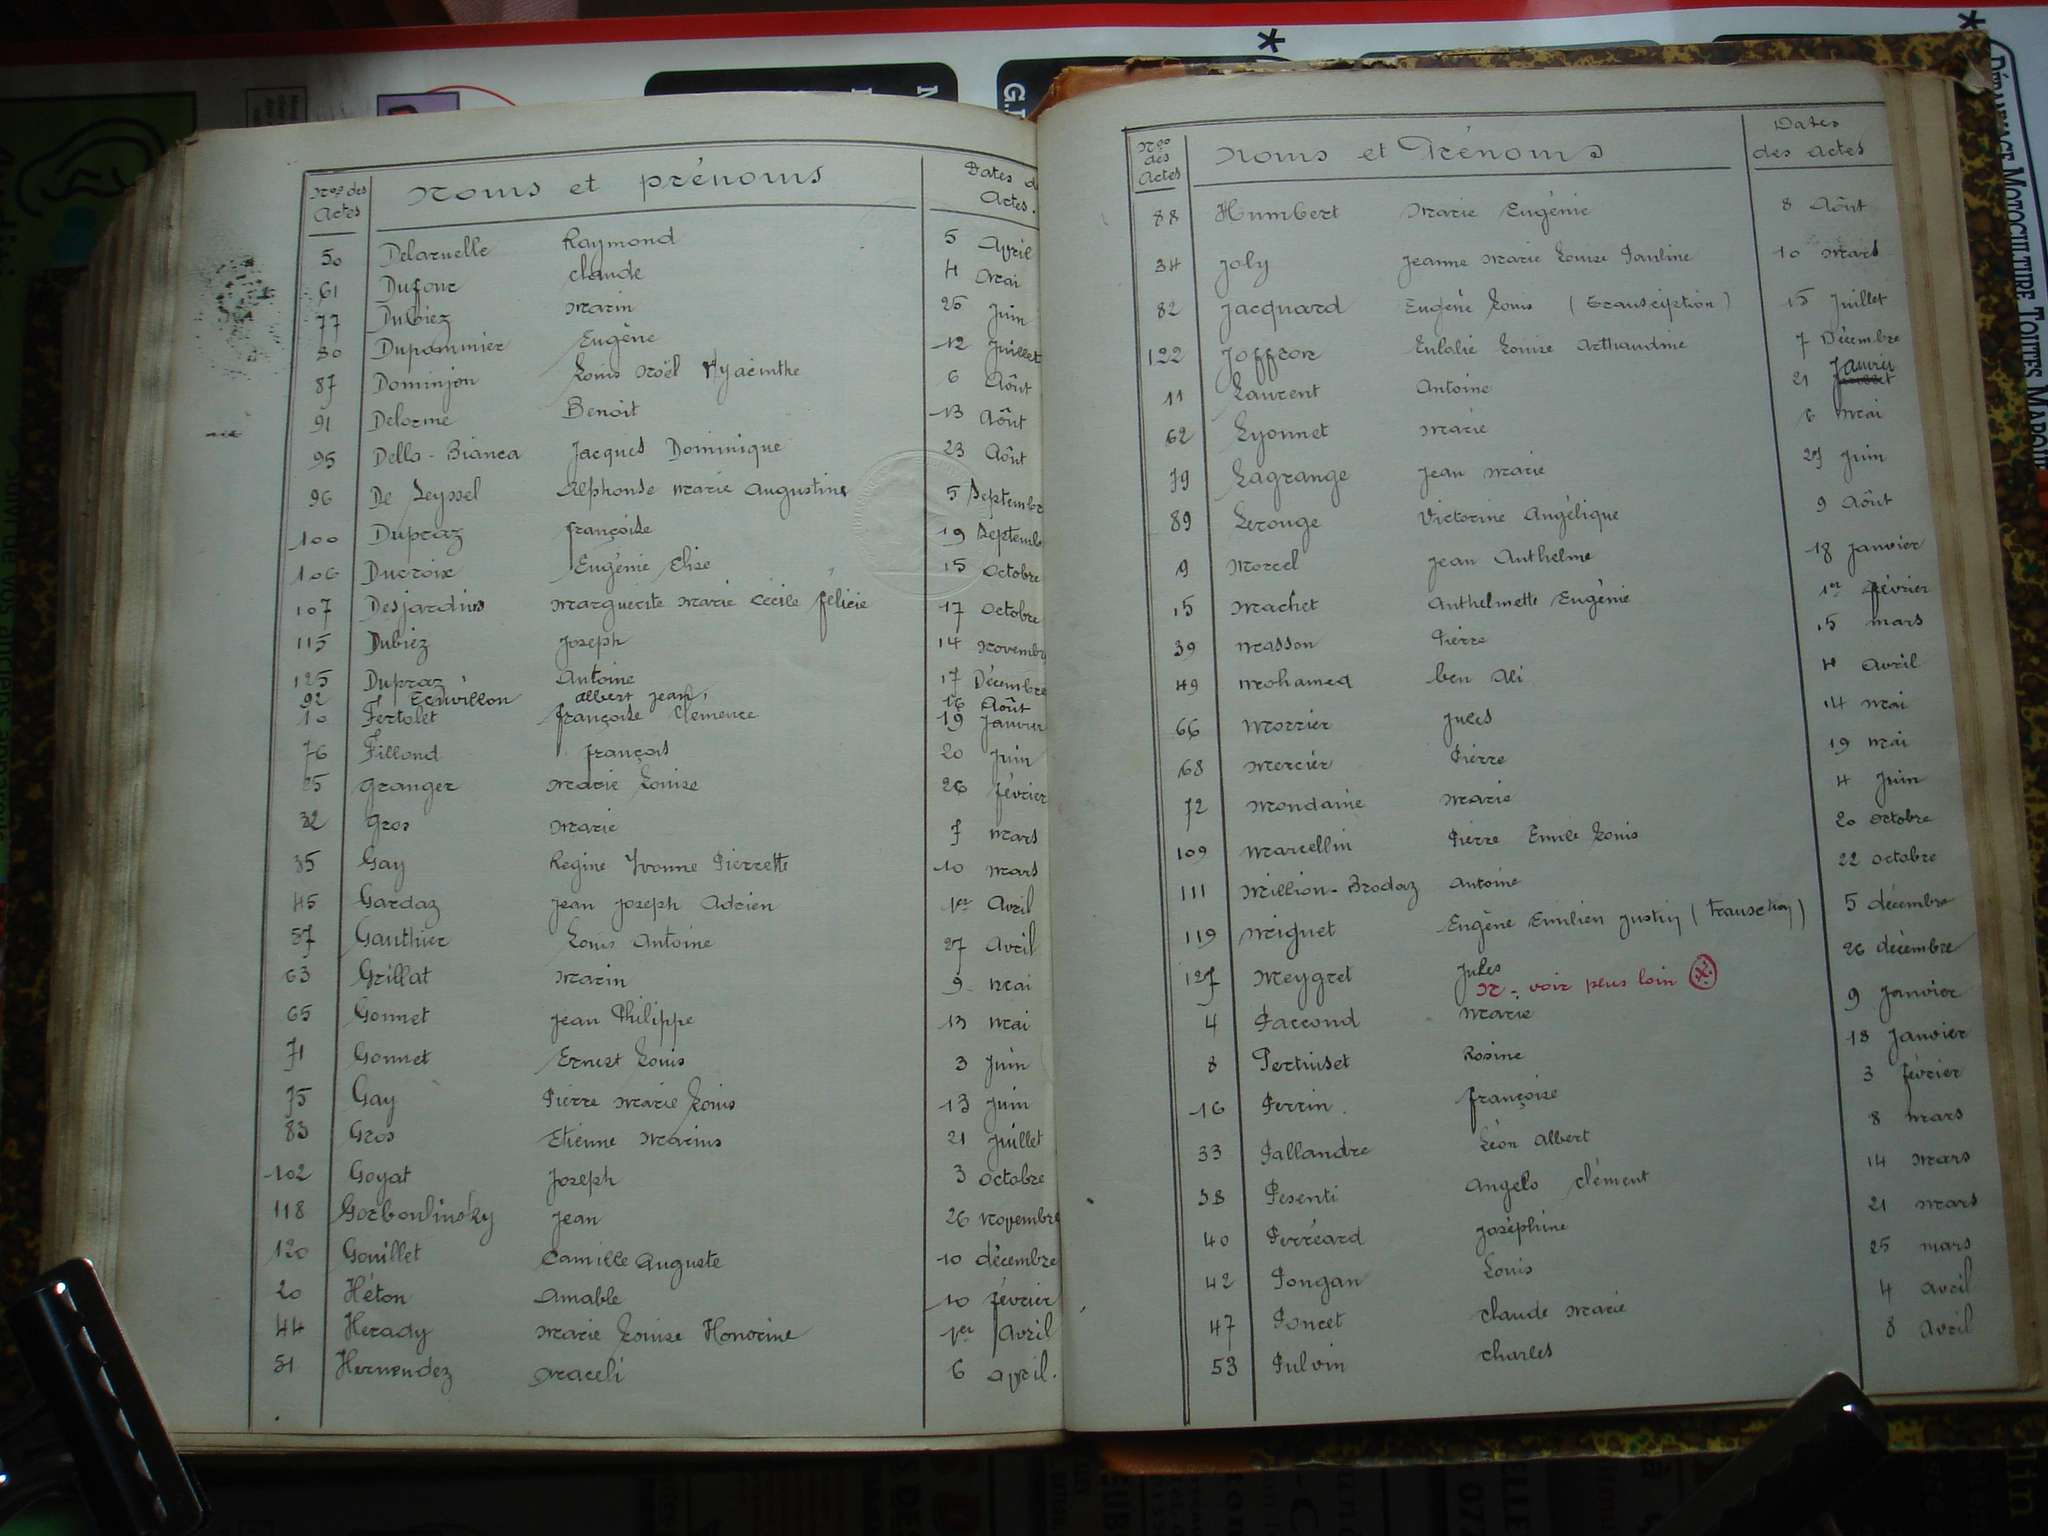 Nos des Actes Noms et prénoms Dates d Actes.
50 Delaruelle Raymond 5 Avril
61 Dufour Claude 4 Mai
77 Dubiez Marin 25 Juin
80 Dupommier Eugène 12 Juillet
87 Dominjon Louis Noël Hyacinthe 6 Aôut
91 Delorme Benoit 13 Aôut
95 Della-Bianca Jacques Dominique 23 Aôut
96 De Seyssel Alphonse Marie Augustine 5 Septembre
100 Dupraz françoise 19 Septemb
106 Ducroix Eugénie Elise 15 Octobre
107 Desjardins Marguerite Marie Cécile félicie 17 Octobre
115 Dubiez Joseph 14 Novembr
125 Dupraz Antoine 17 Décembre
92 Ecouvillon Albert Jean 16 Aôut
10 Fertolet françoise Clémence 19 Janvier
76 Fillond françois 20 Juin
25 Granger Marie Louise 26 février
32 Gros Marie 7 Mars
35 Gay Régine Yvonne Pierrette 10 Mars
45 Gardaz Jean Joseph Adrien 1er Avril
57 Gauthier Louis Antoine 27 Avril
63 Grillat Marin 9 Mai
65 Gonnet Jean Philippe 13 Mai
71 Gonnet Ernest Louis 3 Juin
75 Gay Pierre Marie Louis 13 Juin
83 Gros Etienne Marius 21 Juillet
102 Goyat Joseph 3 Octobre
118 Gorboulinsky Jean 26 Novembre
120 Gouillet Camille Auguste 10 décembre
20 Héton Amable 10 février
44 Herady Marie Louise Honorine 1er Avril
51 Hernendez Araceli 6 April.
Nos des Actes Noms et Prénoms Dates des Actes
88 Humbert Marie Eugénie 8 Aôut
34 Joly Jeanne Marie Louise Pauline 10 Mars
82 Jacquard Eugène Louis (Transcription) 15 Juillet
122 Joffron Eulalie Louise Arthaudine 7 Décembre
11 Laurent Antoine 21 Janvier
62 Lyonnet Marie 6 Mai
79 Lagrange Jean Marie 27 Juin
89 Lerouge Victorine Angélique 9 Aôut
9 Morel Jean Anthelme 18 Janvier
15 Machet Anthelmette Eugénie 1er février
39 Masson Pierre 15 mars
49 Mohamed ben Ali 4 Avril
66 Morrier Jules 14 Mai
68 Mercier Pierre 19 Mai
72 Mondaine Marie 4 Juin
109 Marcellin Pierre Emile Louis 20 Octobre
111 Million-Brodaz Antoine 22 octobre
119 Miguet Eugène Emilien Justin (Transction) 5 décembre
127 Meygret Jules 26 décembre
N - voir plus loin
4 Paccond Marie 9 Janvier
8 Pertuiset Rosine 18 Janvier
16 Perrin françoise 3 février
33 Pallandre Léon Albert 8 Mars
38 Pesenti Angelo Clément 14 Mars
40 Perréard Joséphine 21 Mars
42 Pongan Louis 25 mars
47 Poncet Claude Marie 4 Avril
53 Pulvin Charles 8 Avril